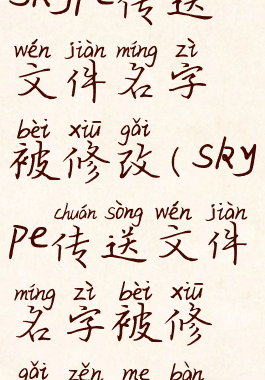 skype传送
wén jiàn míng zì
文件名字
bèi xiū gǎi
被修改(sky
chuán sòng wén jiàn
pe传送文件
míng zì bèi xiū
名字被修
gǎi zěn me bàn